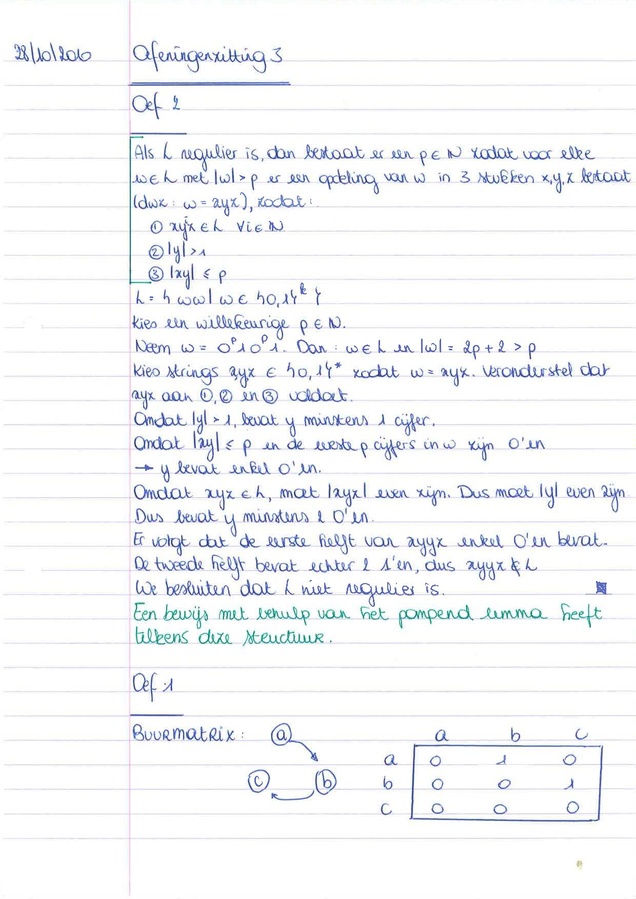 28/10/2010 Oefeningenzitting 3
Oef 2
Als L regulier is, dan bestaat er een p ∈ N zodat voor elke
w ∈ L met |w| > p er een opdeling van w in 3 stukken x, y, z bestaat
(dwz : w = xyz), zodat :
① xyⁱz ∈ L ∀i ∈ N
② |y| > 1
③ |xy| ≤ p
L = { ww | w ∈ {0,1}* }
Kies een willekeurige p ∈ N.
Neem w = 0ᵖ10ᵖ1. Dan : w ∈ L en |w| = 2p + 2 > p
Kies strings x,y,z ∈ {0,1}* zodat w = xyz. Veronderstel dat
xyz aan ①, ② en ③ voldoet.
Omdat |y| > 1, bevat y minstens 1 cijfer.
Omdat |xy| ≤ p en de eerste p cijfers in w zijn 0'en
→ y bevat enkel 0'en.
Omdat xyz ∈ L, moet |xyz| even zijn. Dus moet |y| even zijn
Dus bevat y minstens 2 0'en.
Er volgt dat de eerste helft van xyyz enkel 0'en bevat.
De tweede helft bevat echter 2 1'en, dus xyyz ∉ L
We besluiten dat L niet regulier is.
Een bewijs met behulp van het pompend lemma heeft
telkens deze structuur.
Oef 1
BUURMATRIX : a a b c
c b a 0 1 0
b 0 0 1
c 0 0 0